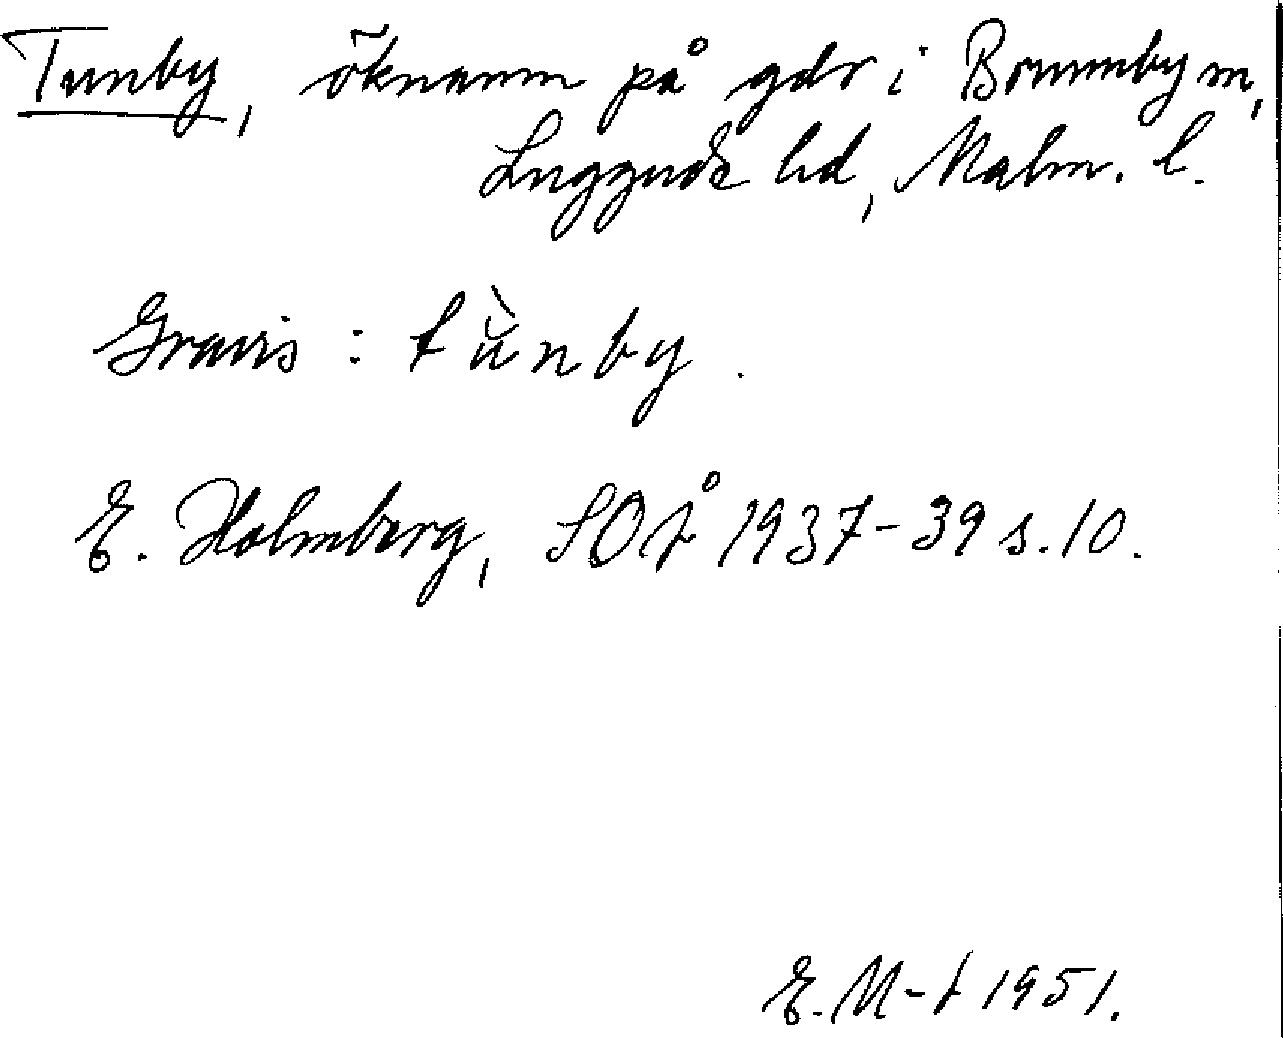 Tunby, öknamn på gdr i Brunnby sn,
Luggude hd, Malm. l.
Gravis: tùnby.
E. Holmberg, SOÅ 1937-39 s. 10.
E. M-t 1951.